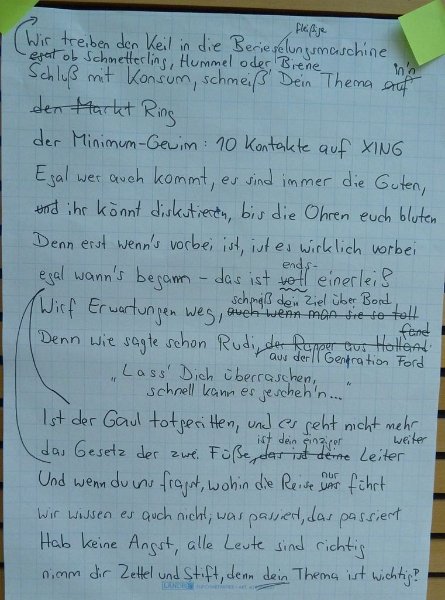 Wir treiben den Keil in die Berieselungsmaschine
egal ob Schmetterling, Hummel oder fleißige Biene
Schluß mit Konsum, schmeiß' Dein Thema auf in'n
den Markt Ring
der Minimum-Gewinn: 10 Kontakte auf XING
Egal wer auch kommt, es sind immer die Guten,
und ihr könnt diskutieren, bis die Ohren euch bluten
Denn erst wenn's vorbei ist, ist es wirklich vorbei
egal wann's begann – das ist voll ends- einerlei!
Wirf Erwartungen weg, auch wenn man sie so toll fand schmeiß dein Ziel über Bord
Denn wie sagte schon Rudi, der Rapper aus Holland
aus der Generation Ford
„Lass' Dich überraschen,
schnell kann es gescheh'n..."
Ist der Gaul totgeritten, und es geht nicht mehr weiter
das Gesetz der zwei Füße, das ist deine ist dein einziger Leiter
Und wenn du uns fragst, wohin die Reise nur führt
Wir wissen es auch nicht; was passiert, das passiert
Hab keine Angst, alle Leute sind richtig
nimm dir Zettel und Stift, denn dein Thema ist wichtig!